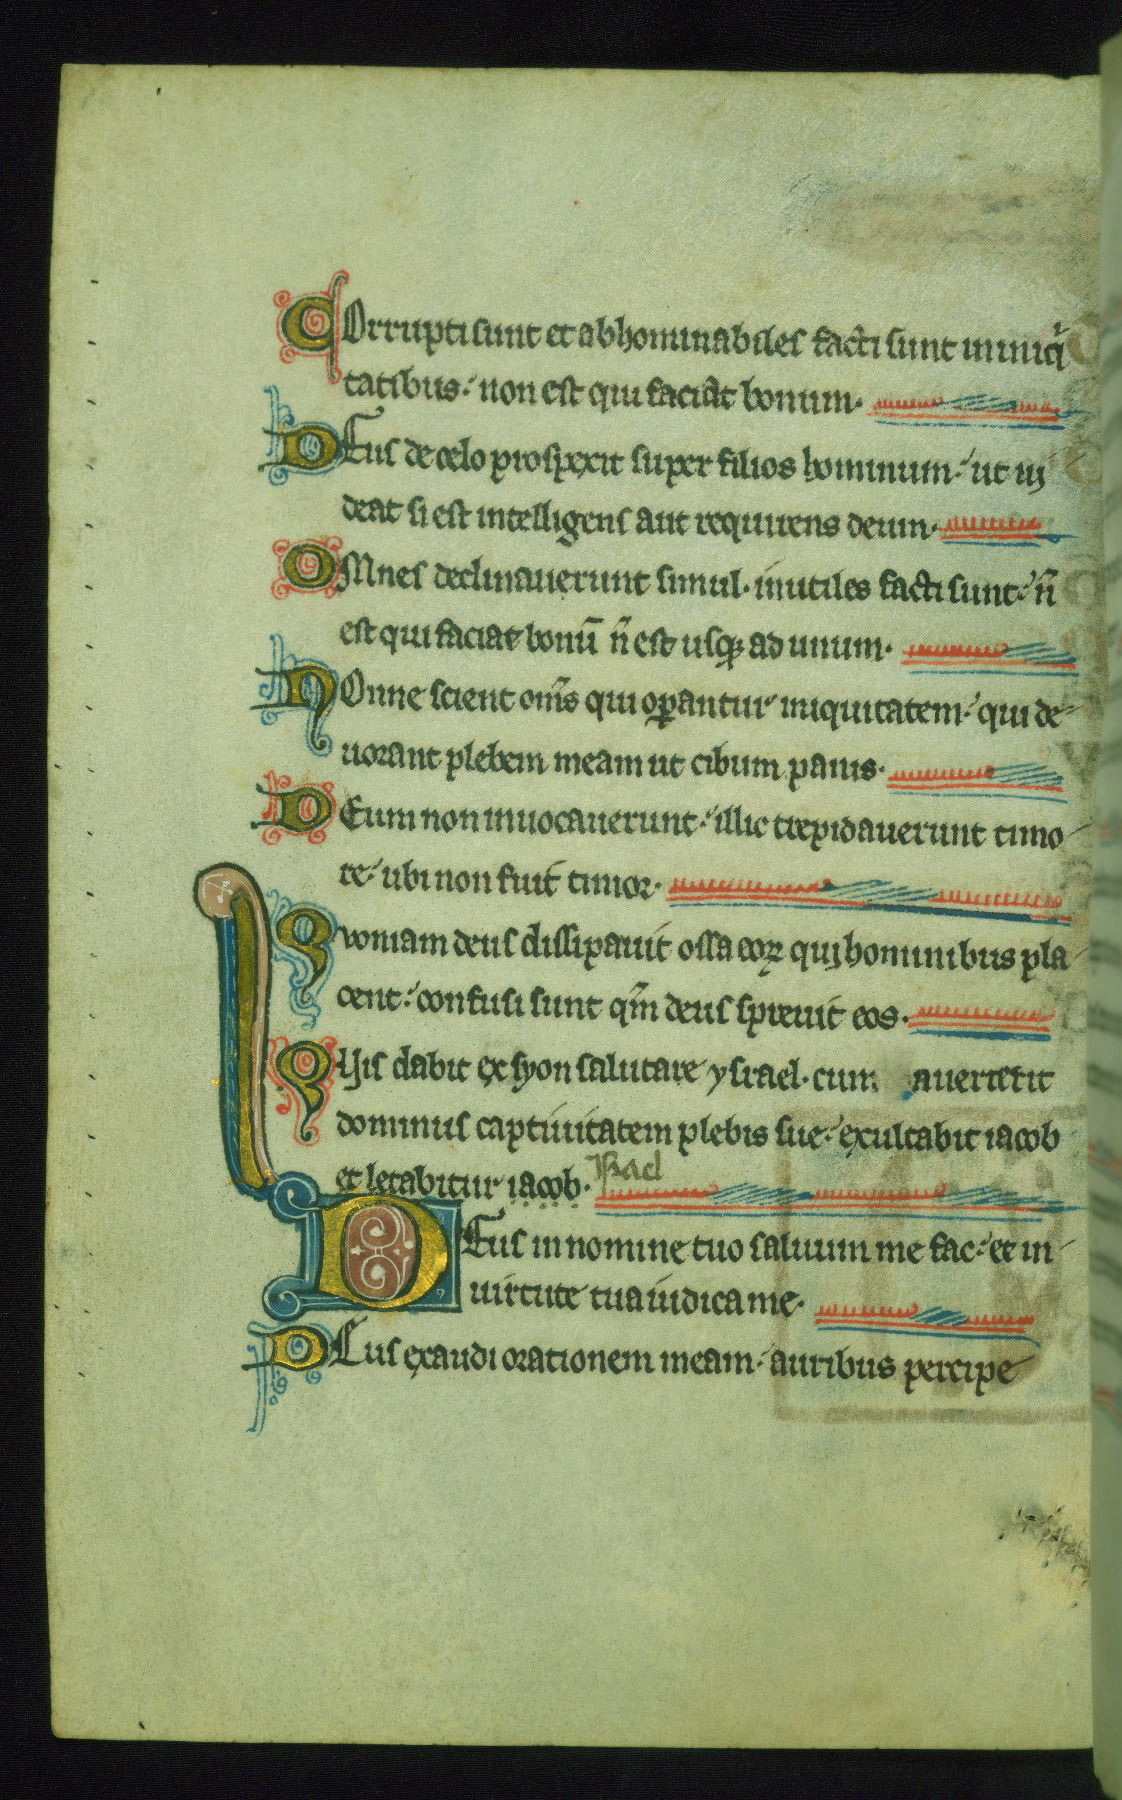 Corrupti sunt et abhominabiles facti sunt in iniq̍
tatibus: non est qui faciat bonum.
Deus de celo prospexit super filios hominum: ut ui
deat si est intelligens aut requirens deum.
Omnes declinauerunt simul. inutiles facti sunt: n̄
est qui faciat bonū n̄ est usq; ad unum.
Nonne scient om̄s qui oꝑantur iniquitatem: qui de
uorant plebem meam ut cibum panis.
Deum non inuocauerunt: illic trepidauerunt timo
re: ubi non fuit timor.
Quoniam deus dissipauit ossa eoꝝ qui hominibus pla
cent: confusi sunt qm̄ deus spreuit eos.
Quis dabit ex syon salutare ysrael. cum auerterit
dominus captiuitatem plebis sue: exultabit iacob
et letabitur iacob. israel
Deus in nomine tuo saluum me fac: et in
uirtute tua iudica me.
Deus exaudi orationem meam: auribus percipe